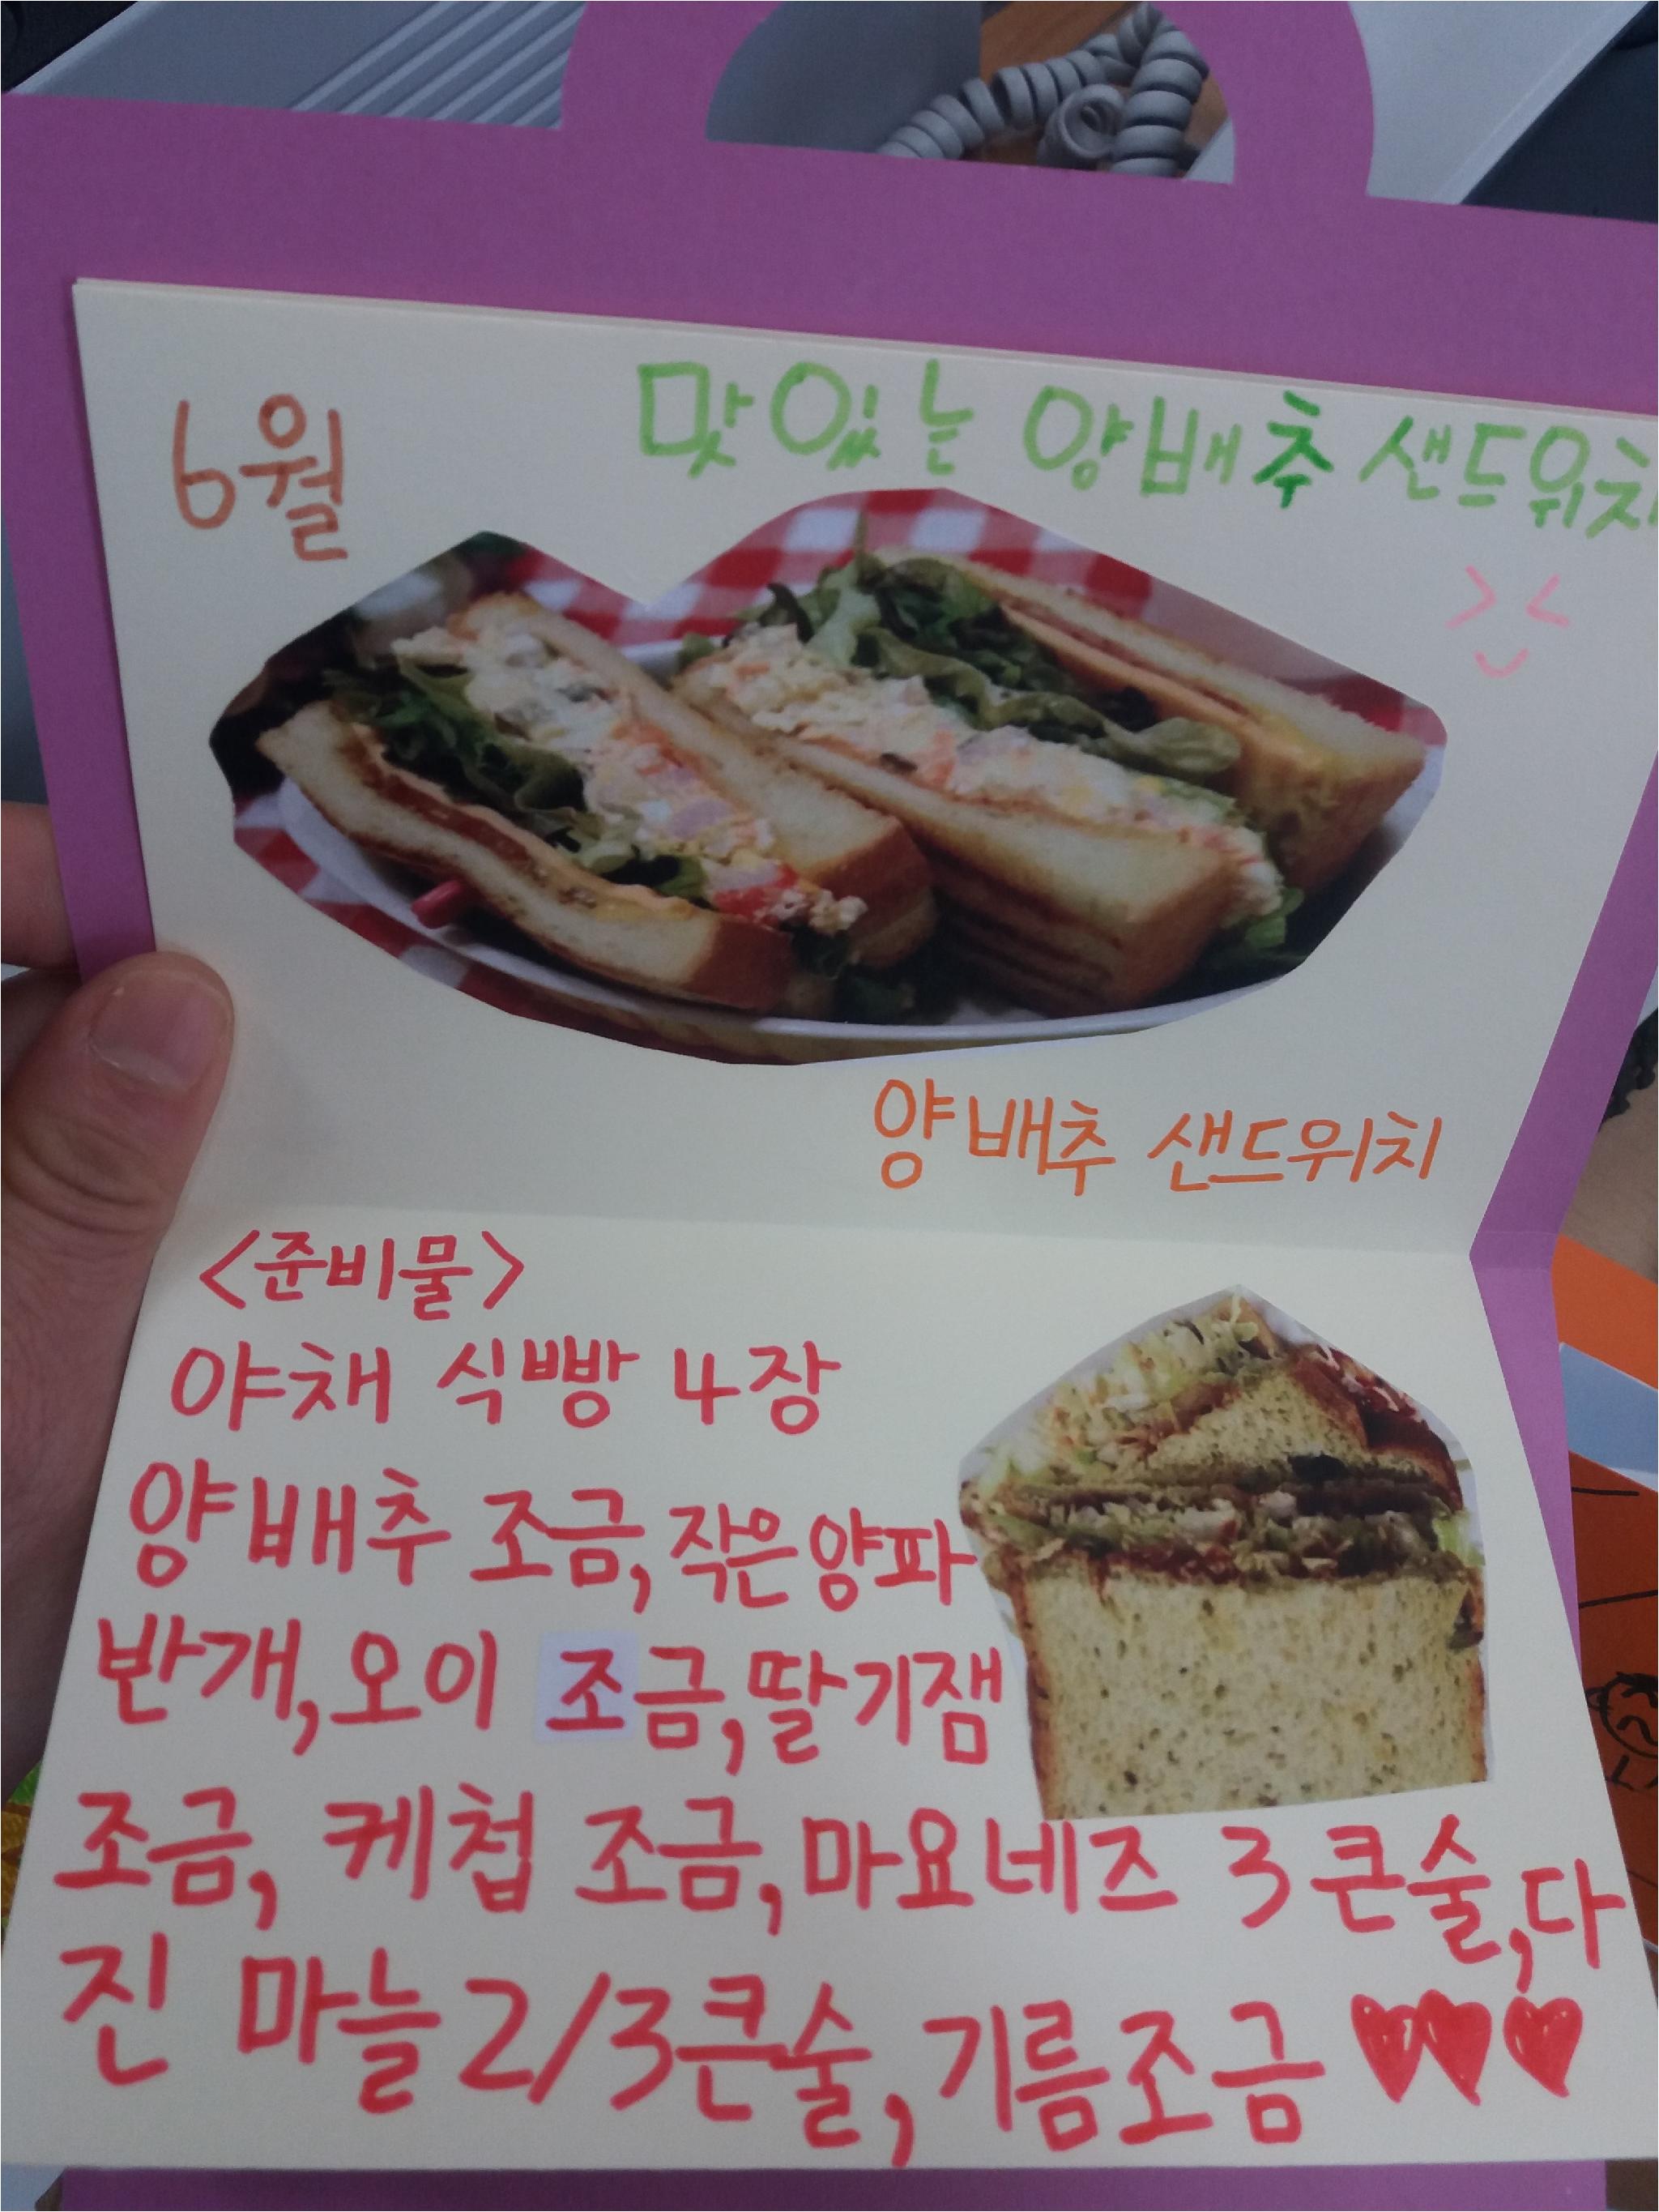 6월
맛있는 양배추 샌드위치
양배추 샌드위치
<준비물>
야채 식빵 4장
양배추 조금, 작은양파
반개, 오이 조금, 딸기잼
조금, 케첩 조금, 마요네즈 3큰술, 다
진 마늘 2/3큰술, 기름조금